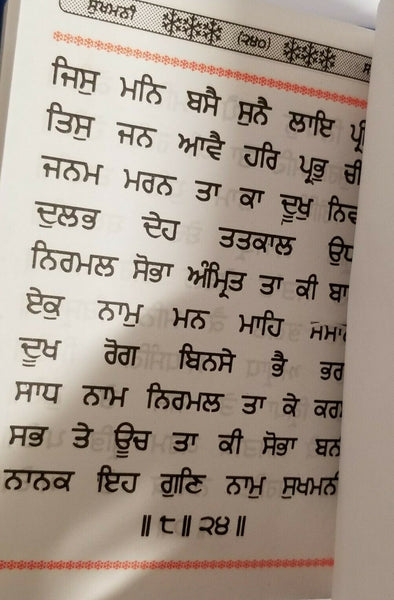 ਸੁਖਮਨੀ (੨੪੦)
ਜਿਸੁ ਮਨਿ ਬਸੈ ਸੁਨੈ ਲਾਇ
ਤਿਸੁ ਜਨ ਆਵੈ ਹਰਿ ਪ੍ਰਭੂ
ਜਨਮ ਮਰਨ ਤਾ ਕਾ ਦੂਖੁ
ਦੁਲਭ ਦੇਹ ਤਤਕਾਲ
ਨਿਰਮਲ ਸੋਭਾ ਅੰਮ੍ਰਿਤ ਤਾ ਕੀ
ਏਕੁ ਨਾਮੁ ਮਨ ਮਾਹਿ
ਦੂਖ ਰੋਗ ਬਿਨਸੇ ਭੈ
ਸਾਧ ਨਾਮ ਨਿਰਮਲ ਤਾ ਕੇ
ਸਭ ਤੇ ਊਚ ਤਾ ਕੀ ਸੋਭਾ
ਨਾਨਕ ਇਹ ਗੁਣਿ ਨਾਮੁ ਸੁਖਮਨੀ
॥੮॥੨੪॥